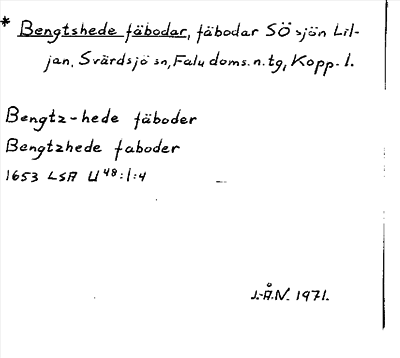 * Bengtshede fäbodar, fäbodar SÖ sjön Lil-
jan, Svärdsjö sn, Falu doms. n. tg, Kopp. l.
Bengtz-hede fäboder
Bengtzhede faboder
1653 LSA U 48:1:4
J.-Å.N. 1971.